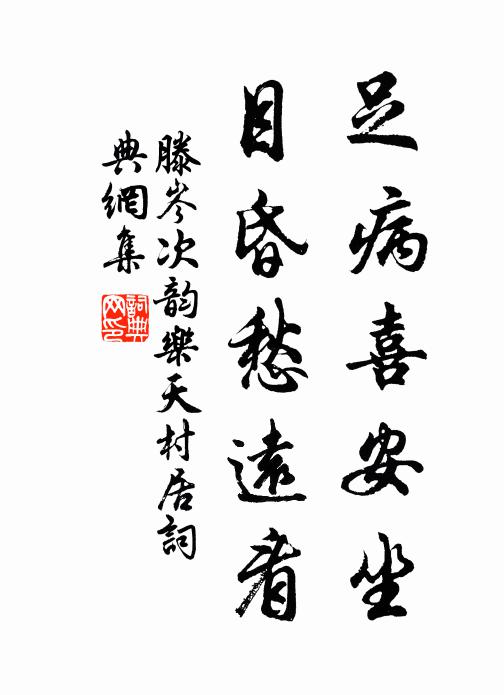 足病喜安坐
目昏愁遠看
滕岑次韵樂天村居詞
典網集
詞典网印